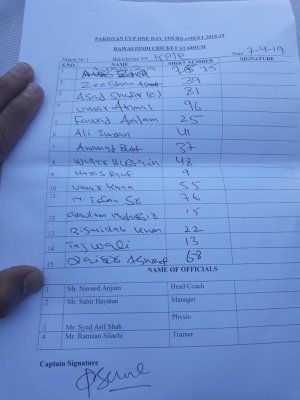 PAKISTAN CUP ONE DAY TOURNAMENT 2018-19
RAWALPINDI CRICKET STADIUM
Match No 1 Balochistan VS KPK Date 7-4-19
S.NO NAME SHIRT NUMBER SIGNATURE
1 75
2 Zeeshan 39
3 Asad Shafiq (c) 81
4 Umar Akmal 96
5 Fawad Aalam 25
6 Ali Imran 41
7 Ammad Butt 37
8 Waqar Hussain 48
9 Haris Rauf 9
10 Umar Khan 55
11 M. Irfan Sr 76
12 Ghulam Mudassir 15
13 Bismillah Khan 22
14 Taj Wali 13
15 Qaiser Ashraf 68
NAME OF OFFICIALS
1 Mr. Naveed Anjum Head Coach
2 Mr. Sabir Hayatan Manager
Physio
3 Mr. Syed Arif Shah
4 Mr. Ramzan Silachi Trainer
Captain Signature